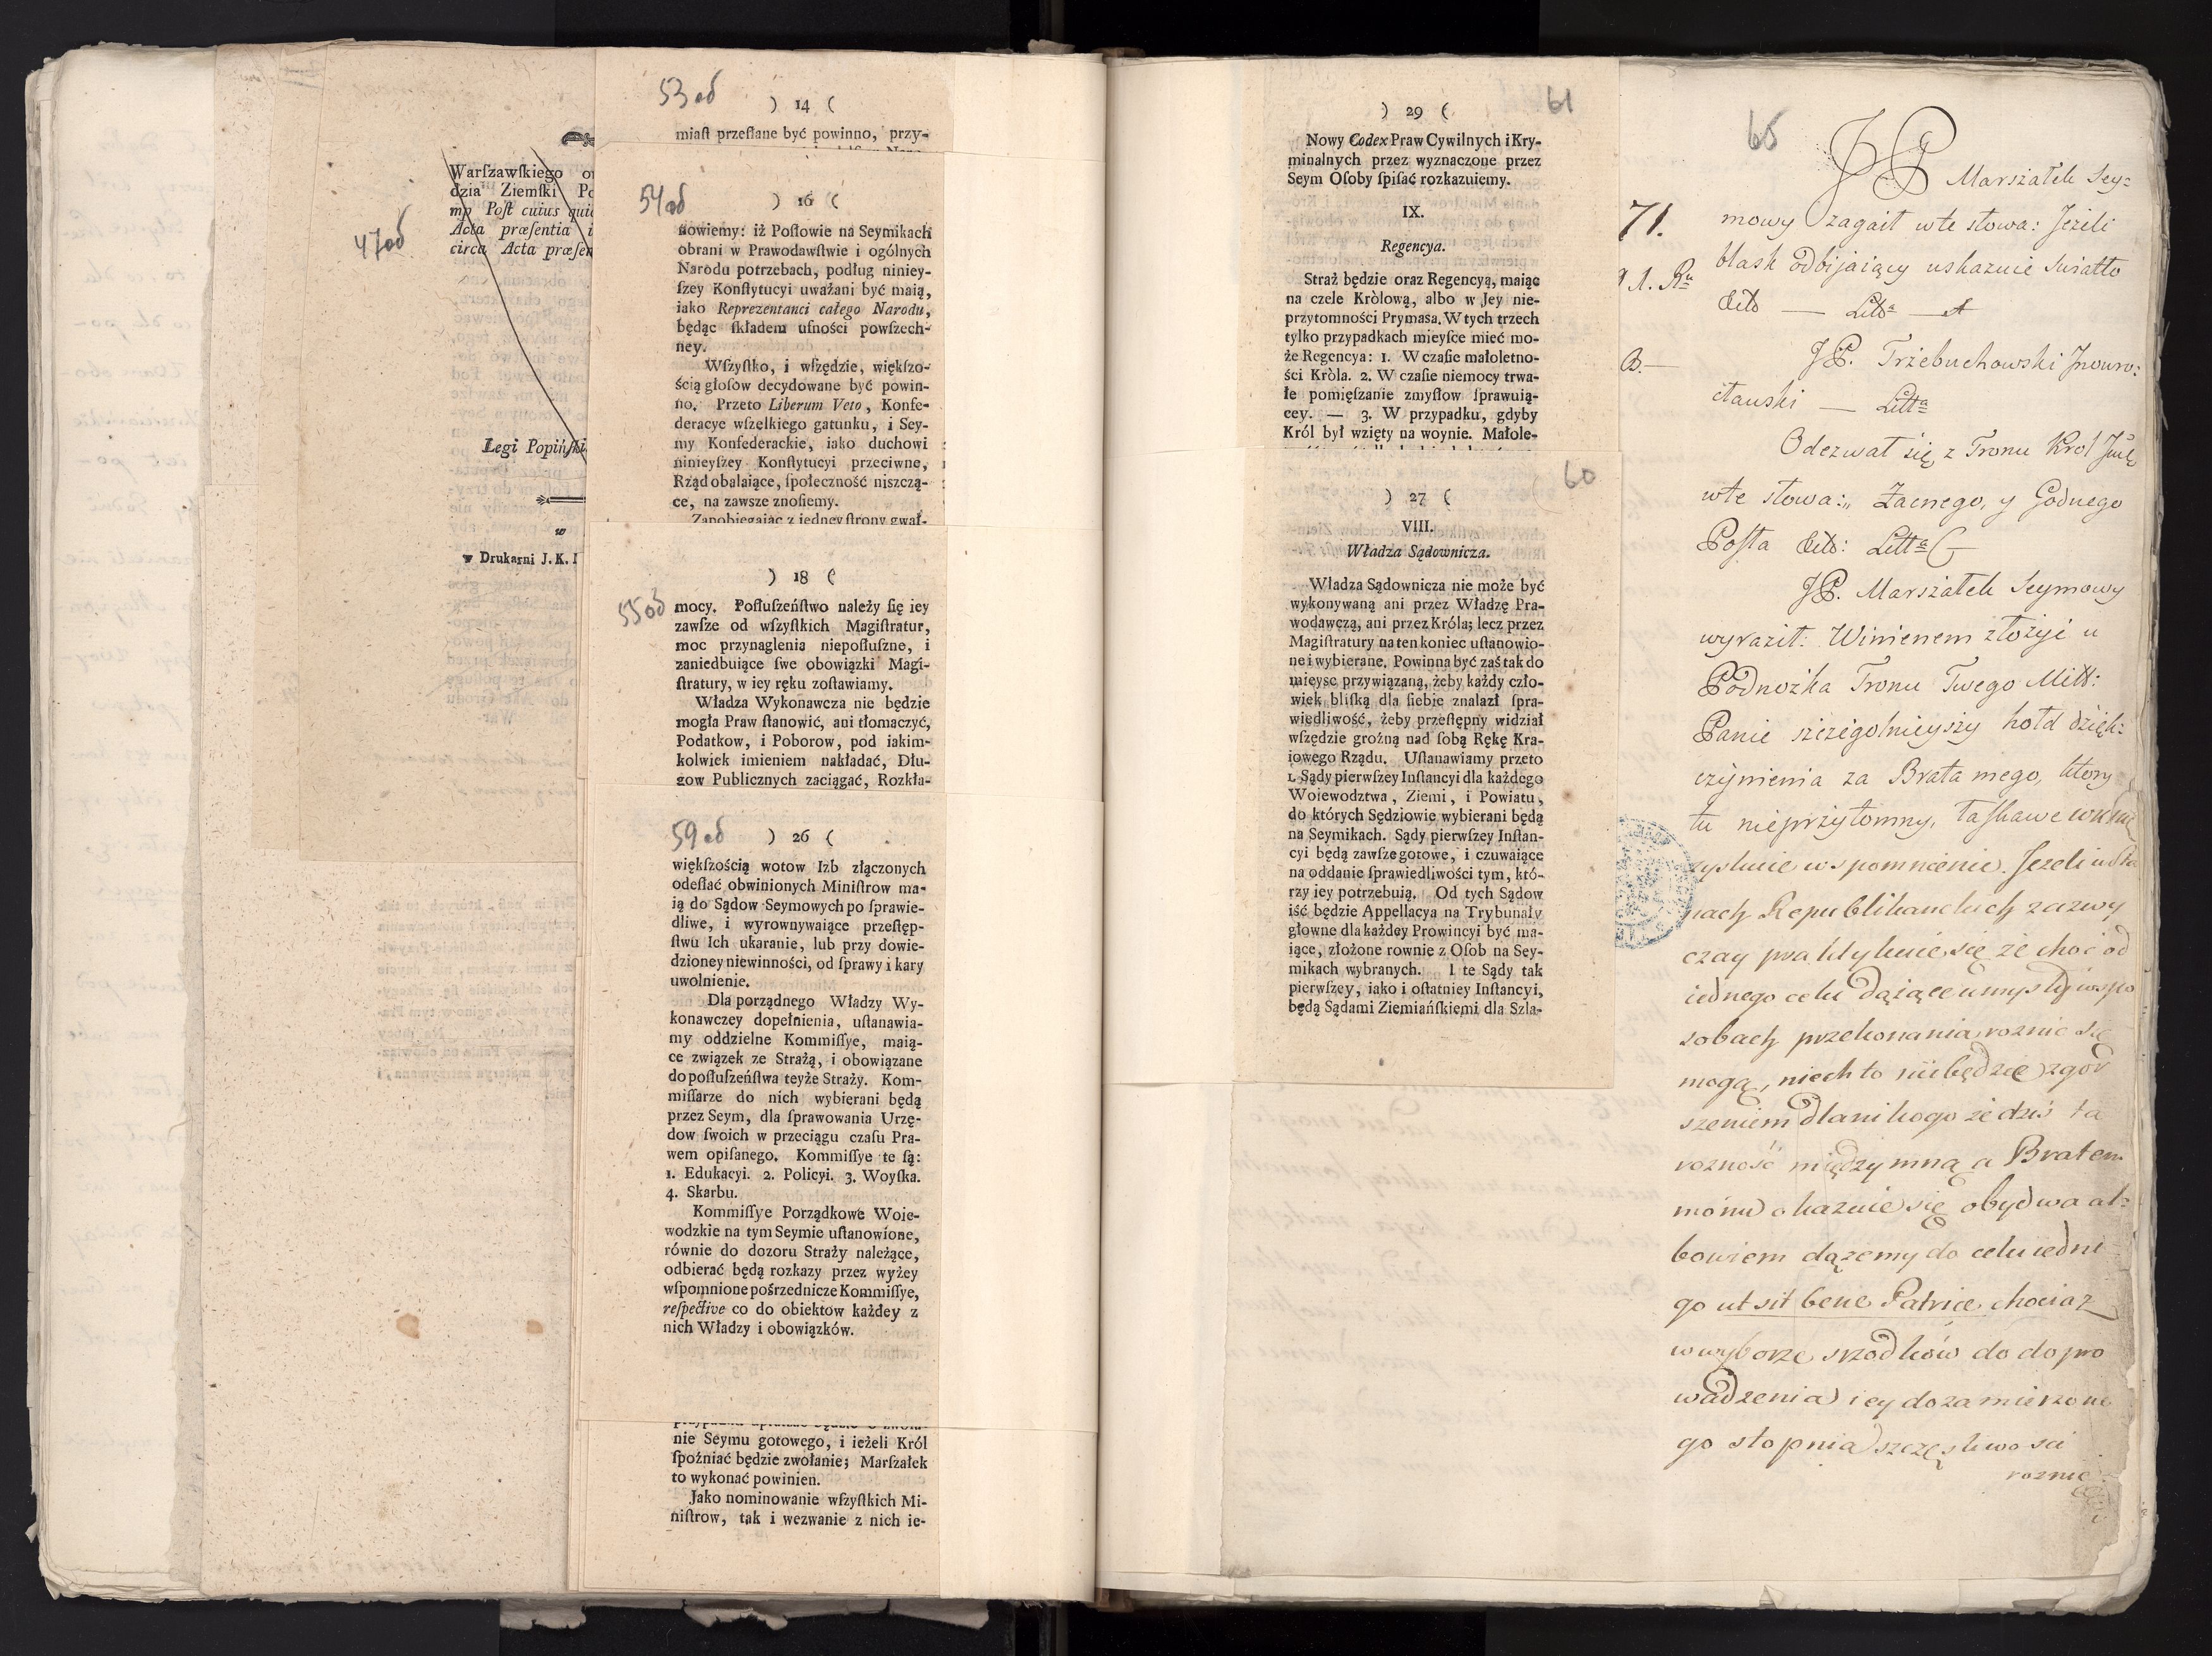 47об
Warſzawſkiego
dzia Ziemſki
mp Poſt cuius
Acta præſentia
circa Acta
Legi Popińſki
w
w Drukarni J. K.
53об
) 14 (
miaſt przeſłane być powinno, przy-
54об
) 16 (
nowiemy: iż Poſłowie na Seymikach
obrani w Prawodawſtwie i ogólnych
Narodu potrzebach, podług niniey-
ſzey Konſtytucyi uważani być maią,
iako Reprezentanci całego Narodu,
będąc ſkładem ufności powſzech-
ney.
Wſzyſtko, i wſzędzie, większo-
ścią głoſow decydowane być powin-
no. Przeto Liberum Veto, Konfe-
deracye wſzelkiego gatunku, i Sey-
my Konfederackie, iako duchowi
ninieyſzey Konſtytucyi przeciwne,
Rząd obalaiące, ſpołeczność niszczą-
ce, na zawsze znoſiemy.
Zapobiegaiąc z iedney ſtrony gwał-
55об
) 18 (
mocy. Poſłuſzeńſtwo należy ſię iey
zawſze od wſzyſtkich Magiſtratur,
moc przynaglenia niepoſłuſzne, i
zaniedbuiące ſwe obowiązki Magi-
ſtratury, w iey ręku zoſtawiamy.
Władza Wykonawcza nie będzie
mogła Praw ſtanowić, ani tłomaczyć,
Podatkow, i Poborow, pod iakim-
kolwiek imieniem nakładać, Dłu-
gow Publicznych zaciągać, Rozkła-
59об
) 26 (
więkſzością wotow Izb złączonych
odeſłać obwinionych Miniſtrow ma-
ią do Sądow Seymowych po ſprawie-
dliwe, i wyrownywaiące przeſtęp-
ſtwu Ich ukaranie, lub przy dowie-
dzioney niewinności, od ſprawy i kary
uwolnienie.
Dla porządnego Władzy Wy-
konawczey dopełnienia, uſtanawia-
my oddzielne Kommiſſye, maią-
ce związek ze Strażą, i obowiązane
do poſłuſzeńſtwa teyże Straży. Kom-
miſſarze do nich wybierani będą
przez Seym, dla ſprawowania Urzę-
dow ſwoich w przeciągu czaſu Pra-
wem opiſanego. Kommiſſye te ſą:
1. Edukacyi. 2. Policyi. 3. Woyſka.
4. Skarbu.
Kommiſſye Porządkowe Woie-
wodzkie na tym Seymie uſtanowione,
równie do dozoru Straży należące,
odbierać będą rozkazy przez wyżey
wſpomnione pośrzednicze Kommiſſye,
reſpective co do obiektow każdey z
nich Władzy i obowiązków.
nie Seymu gotowego, i ieżeli Król
ſpoźniać będzie zwołanie; Marſzałek
to wykonać powinien.
Jako nominowanie wſzyſtkich Mi-
niſtrow, tak i wezwanie z nich ie-
61
) 29 (
Nowy Codex Praw Cywilnych i Kry-
minalnych przez wyznaczone przez
Seym Oſoby ſpiſać rozkazuiemy.
IX.
Regencya.
Straż będzie oraz Regencyą, maiąc
na czele Królową, albo w Jey nie-
przytomności Prymasa. W tych trzech
tylko przypadkach mieyſce mieć mo-
że Regencya: 1. W czaſie małoletno-
ści Króla. 2. W czaſie niemocy trwa-
łe pomięſzanie zmyſłow ſprawuią-
cey. — 3. W przypadku, gdyby
Król był wzięty na woynie. Małole-
60
) 27 (
VIII.
Władza Sądownicza.
Władza Sądownicza nie może być
wykonywaną ani przez Władzę Pra-
wodawczą, ani przez Króla; lecz przez
Magiſtratury na ten koniec uſtanowio-
ne i wybierane. Powinna być zaś tak do
mieysc przywiązaną, żeby każdy czło-
wiek bliſką dla ſiebie znalazł ſpra-
wiedliwość, żeby przeſtępny widział
wſzędzie groźną nad ſobą Rękę Kra-
iowego Rządu. Uſtanawiamy przeto
1. Sądy pierwſzey Inſtancyi dla każdego
Woiewodztwa, Ziemi, i Powiatu,
do których Sędziowie wybierani będą
na Seymikach. Sądy pierwſzey Inſtan-
cyi będą zawſze gotowe, i czuwaiące
na oddanie ſprawiedliwości tym, któ-
rzy iey potrzebuią. Od tych Sądow
iść będzie Appellacya na Trybunały
głowne dla każdey Prowincyi być ma-
iące, złożone rownie z Oſob na Sey-
mikach wybranych. I te Sądy tak
pierwſzey, iako i oſtatniey Inſtancyi,
będą Sądami Ziemiańſkiemi dla Szla-
65
JP Marszałek Sey:
71. mowy zagaił w te słowa: Jeżeli
blask odbijaiący uskazuie Swiatło
Litt — A
B. — JP. Trzebuchowski Jnowro:
cławski — Litta
Odezwał się z Tronu Krol Jmć
w te słowa: „ Zacnego, y Godnego
Posła Litta C
JP. Marszałek Seymowy
wyraził: Winienem złożyć u
Podnożka Tronu Twego Mił:
Panie szczegolnieyszy hołd dzięk:
czynienia za Brata mego, ktory
tu nieprzytomny, łaskawe
zyskuie wspomnienie. Jeżeli
nach Republikanckich zazwy
czay praktykuie się że choć od
iednego celu dążące umysły w spo
sobach przekonania roznić się
mogą, niech to nie będzie zgor
szeniem dla nikogo że dziś ta
rozność między mną a Bratem
moim okazuie się obydwa al:
bowiem dążemy do celu iedne
go ut sit bene Patriæ chociaż
w wyborze srzodkow do dopro
wadzenia iey do zamierzone
go stopnia szczęśliwości
roznić